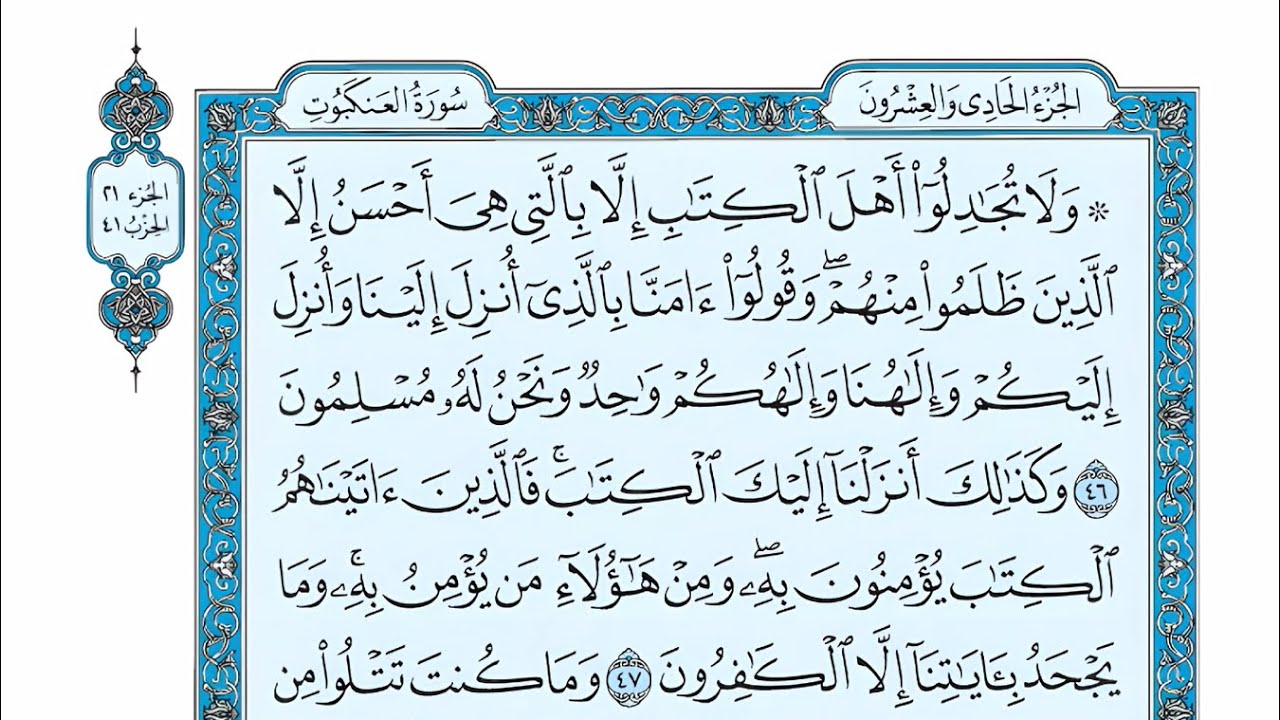 الجُزْءُ الحَادِى وَالعِشْرُونَ
سُورَةُ العَنكَبُوتِ
الجُزء ٢١
الحِزْبُ ٤١
* وَلَا تُجَٰدِلُوٓا۟ أَهْلَ ٱلْكِتَٰبِ إِلَّا بِٱلَّتِى هِىَ أَحْسَنُ إِلَّا
ٱلَّذِينَ ظَلَمُوا۟ مِنْهُمْ ۖ وَقُولُوٓا۟ ءَامَنَّا بِٱلَّذِىٓ أُنزِلَ إِلَيْنَا وَأُنزِلَ
إِلَيْكُمْ وَإِلَٰهُنَا وَإِلَٰهُكُمْ وَٰحِدٌ وَنَحْنُ لَهُۥ مُسْلِمُونَ
٤٦ وَكَذَٰلِكَ أَنزَلْنَآ إِلَيْكَ ٱلْكِتَٰبَ ۚ فَٱلَّذِينَ ءَاتَيْنَٰهُمُ
ٱلْكِتَٰبَ يُؤْمِنُونَ بِهِۦ ۖ وَمِنْ هَٰٓؤُلَآءِ مَن يُؤْمِنُ بِهِۦ ۚ وَمَا
يَجْحَدُ بِـَٔايَٰتِنَآ إِلَّا ٱلْكَٰفِرُونَ ٤٧ وَمَا كُنتَ تَتْلُوا۟ مِن